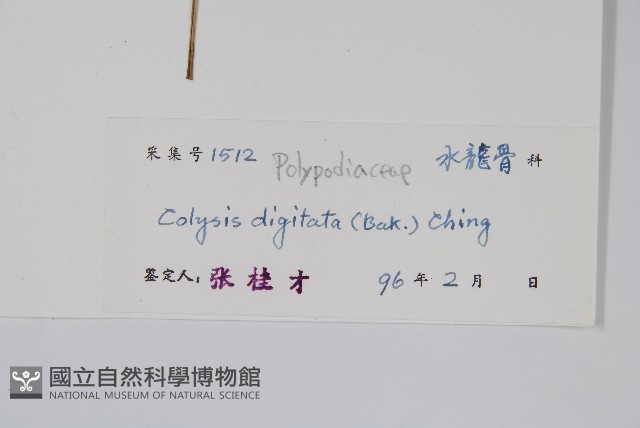 采集号 1512 Polypodiaceae 水龍骨 科
Colysis digitata (Bak.) Ching
鉴定人: 张桂才 96 年 2 月 日
國立自然科學博物館
NATIONAL MUSEUM OF NATURAL SCIENCE